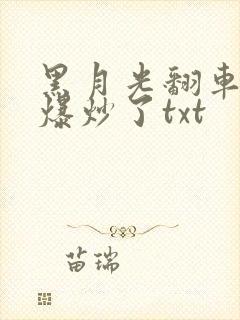 黑月光翻車
爆炒了txt
苗瑞